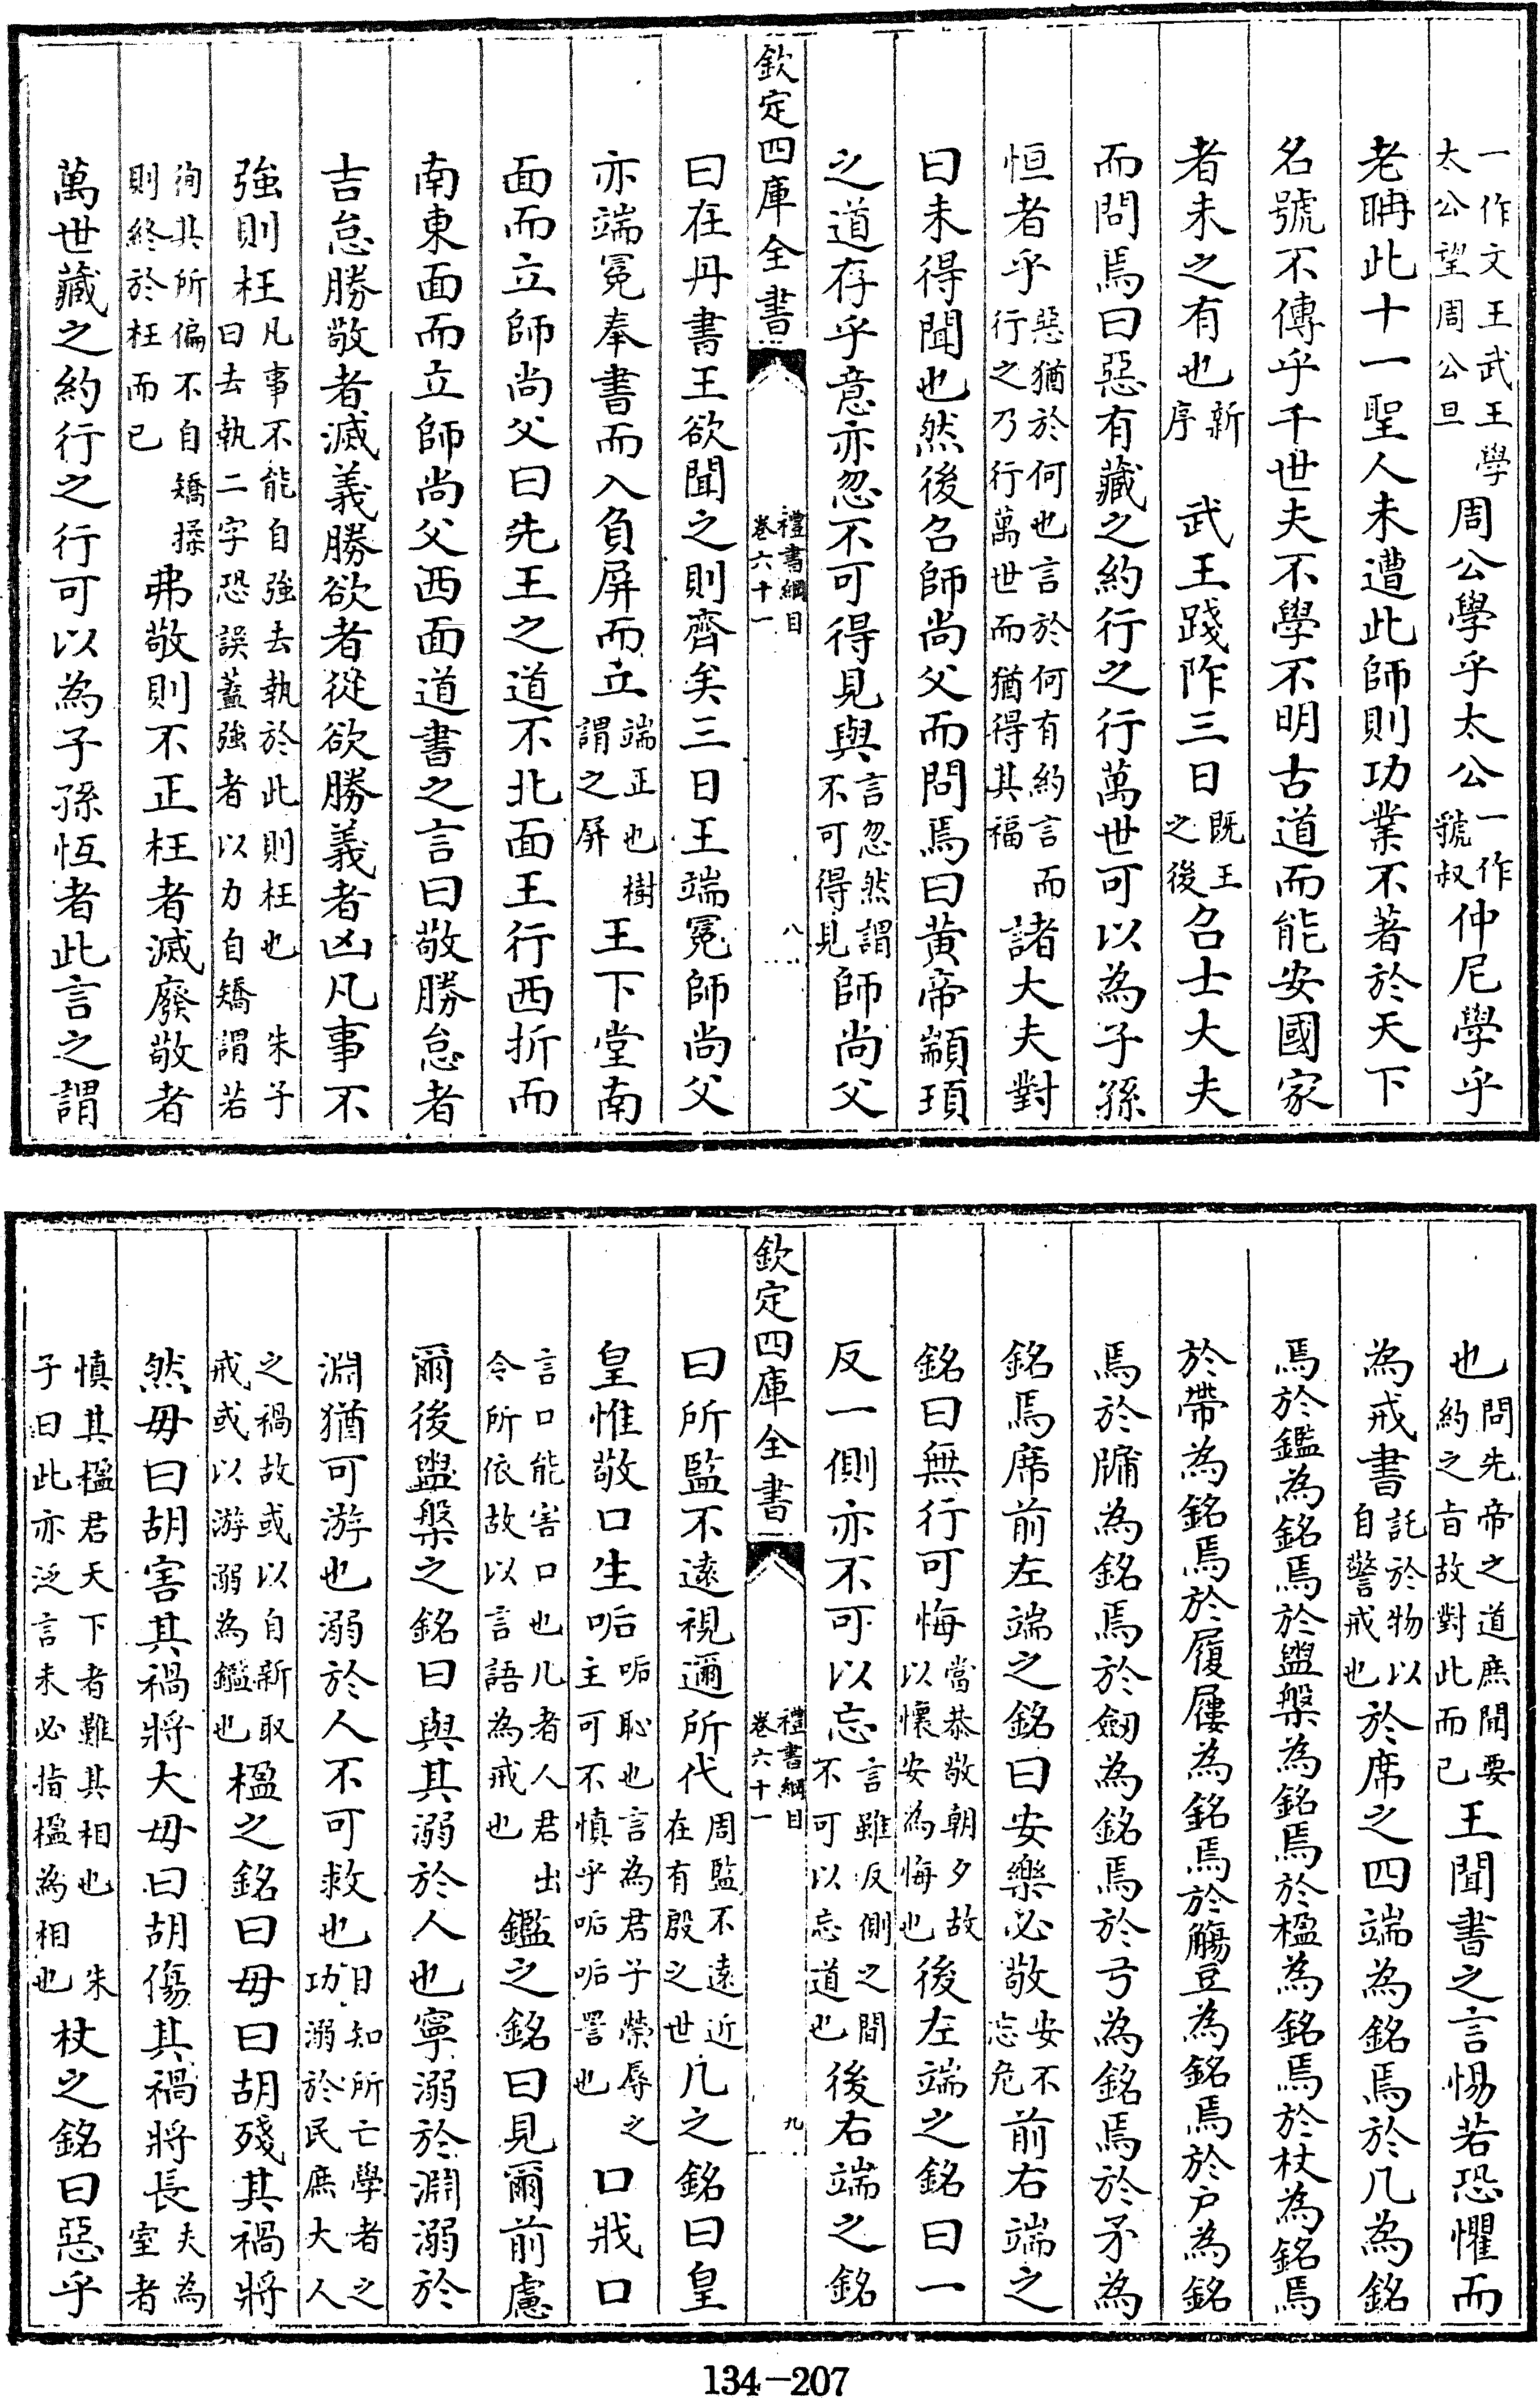 一作文王武王學
太公望周公旦
周公學乎太公
一作
虢叔
仲尼學乎
老聃此十一聖人未遭此師則功業不著於天下
名號不傳乎千世夫不學不明古道而能安國家
者未之有也
新
序
武王踐阼三日
既王
之後
召士大夫
而問焉曰惡有藏之約行之行萬世可以為子孫
恒者乎
惡猶於何也言於何有約言而
行之乃行萬世而猶得其福
諸大夫對
曰未得聞也然後召師尚父而問焉曰黃帝顓頊
之道存乎意亦忽不可得見與
言忽然謂
不可得見
師尚父
欽定四庫全書
禮書綱目
卷六十一
八
曰在丹書王欲聞之則齊矣三日王端冕師尚父
亦端冕奉書而入負屏而立
端正也樹
謂之屏
王下堂南
面而立師尚父曰先王之道不北面王行西折而
南東面而立師尚父西面道書之言曰敬勝怠者
吉怠勝敬者滅義勝欲者從欲勝義者凶凡事不
強則枉
凡事不能自強去執於此則枉也 朱子
曰去執二字恐誤蓋強者以力自矯謂若
徇其所偏不自矯揉
則終於枉而已
弗敬則不正枉者滅廢敬者
萬世藏之約行之行可以為子孫恆者此言之謂
也
問先帝之道庶聞要
約之旨故對此而已
王聞書之言惕若恐懼而
為戒書
託於物以
自警戒也
於席之四端為銘焉於几為銘
焉於鑑為銘焉於盥槃為銘焉於楹為銘焉於杖為銘焉
於帶為銘焉於履屨為銘焉於觴豆為銘焉於户為銘
焉於牖為銘焉於劒為銘焉於弓為銘焉於矛為
銘焉席前左端之銘曰安樂必敬
安不
忘危
前右端之
銘曰無行可悔
當恭敬朝夕故
以懷安為悔也
後左端之銘曰一
反一側亦不可以忘
言雖反側之間
不可以忘道也
後右端之銘
欽定四庫全書
禮書綱目
卷六十一
九
曰所監不遠視邇所代
周監不遠近
在有殷之世
几之銘曰皇
皇惟敬口生㖃
㖃恥也言為君子榮辱之
主可不慎乎㖃㖃詈也
口戕口
言口能害口也几者人君出
令所依故以言語為戒也
鑑之銘曰見爾前慮
爾後盥槃之銘曰與其溺於人也寧溺於淵溺於
淵猶可游也溺於人不可救也
日知所亡學者之
功溺於民庶大人
之禍故或以自新取
戒或以游溺為鑑也
楹之銘曰毋曰胡殘其禍將
然毋曰胡害其禍將大毋曰胡傷其禍將長
夫為
室者
慎其楹君天下者難其相也 朱
子曰此亦泛言未必指楹為相也
杖之銘曰惡乎
134-207